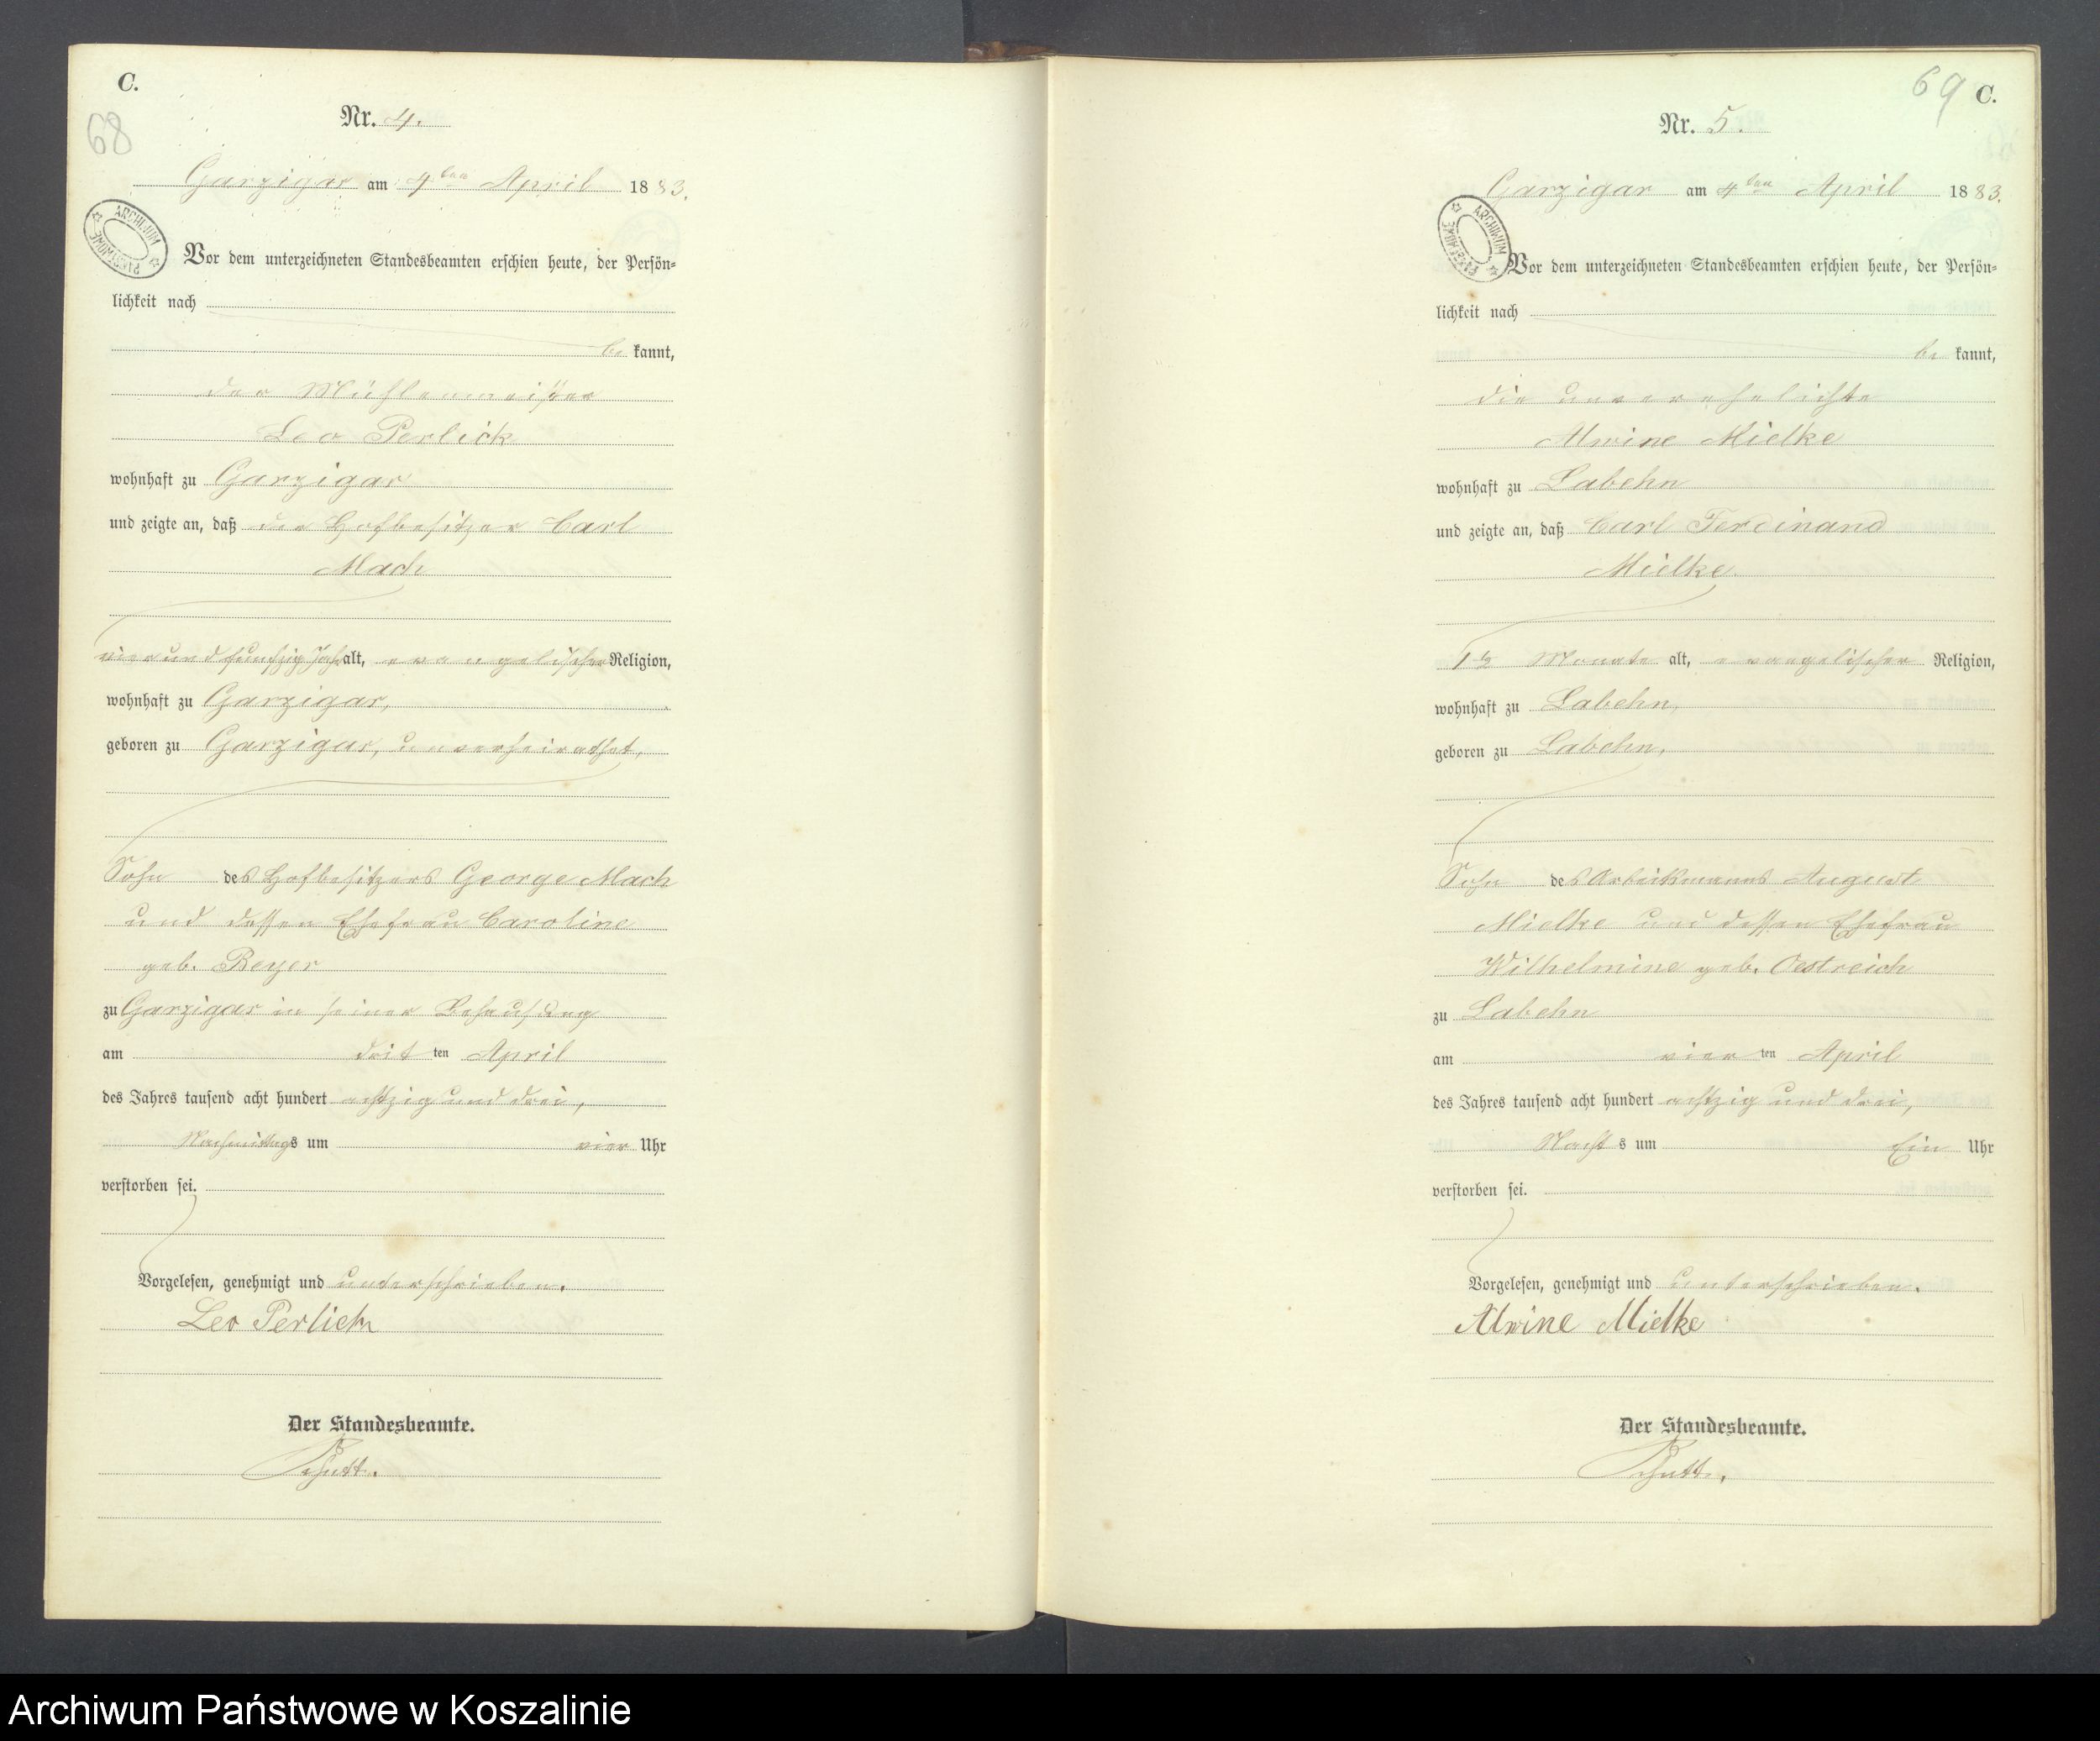 C.
68
Nr. 4.
Garzigar am 4ten April 1883.
ARCHIWUM PAŃSTWOWE
Vor dem unterzeichneten Standesbeamten erschien heute, der Persön=
lichkeit nach
be kannt,
der Mühlenmeister
Leo Perlick
wohnhaft zu Garzigar
und zeigte an, daß der Hofbesitzer Carl
Mach
vierundfunfzig Jahr alt, evangelischer Religion,
wohnhaft zu Garzigar,
geboren zu Garzigar, unverheirathet,
Sohn des Hofbesitzers George Mach
und dessen Ehefrau Caroline
geb. Beyer
zu Garzigar in seiner Behausung
am dritten April
des Jahres tausend acht hundert achtzig und drei,
Nachmittags um vier Uhr
verstorben sei.
Vorgelesen, genehmigt und unterschrieben.
Leo Perlick
Der Standesbeamte.
69 C.
Nr. 5.
Garzigar am 4ten April 1883.
ARCHIWUM PAŃSTWOWE
Vor dem unterzeichneten Standesbeamten erschien heute, der Persön=
lichkeit nach
be kannt,
die unverehelichte
Alwine Mielke
wohnhaft zu Labehn
und zeigte an, daß Carl Ferdinand
Mielke
1½ Monate alt, evangelischer Religion,
wohnhaft zu Labehn,
geboren zu Labehn,
Sohn des Arbeitsmanns August
Mielke und dessen Ehefrau
Wilhelmine geb. Oestreich
zu Labehn
am vierten April
des Jahres tausend acht hundert achtzig und drei,
Nachts um Ein Uhr
verstorben sei.
Vorgelesen, genehmigt und unterschrieben.
Alwine Mielke
Der Standesbeamte.
Archiwum Państwowe w Koszalinie